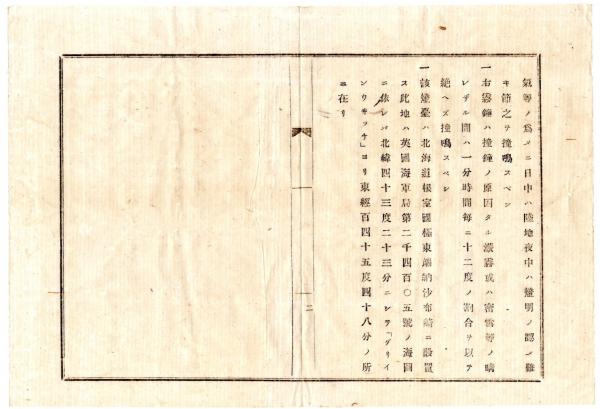 氣等ノ爲メニ日中ハ陸地夜中ハ燈明ノ認メ難
キ節之ヲ撞鳴スベシ
一右霧鐘ハ撞鐘ノ原因タル濛霧或ハ密雪等ノ晴
レザル間ハ一分時間每ニ十二度ノ割合ヲ以テ
絶ヘズ撞鳴スベシ
一該燈臺ハ北海道根室國極東端納沙布崎ニ設置
ス此地ハ英國海軍局第二千四百〇五號ノ海圖
ニ依レバ北緯四十三度二十三分ニシテ「グリイ
ンウキッチ」ヨリ東經百四十五度四十八分ノ所
ニ在リ
二